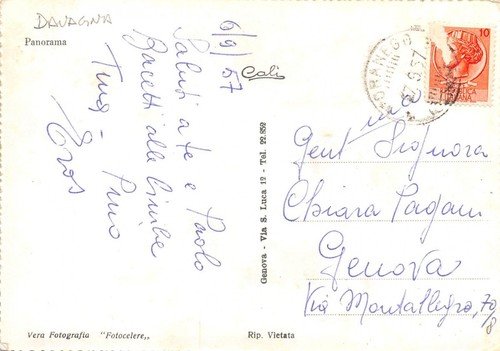 DAVAGNA
Panorama
6/9/57
Saluti a te e Paolo
Bacetti alle bimbe
Tina - Pino
Eros
Cali
Genova - Via S. Luca 12 - Tel. 22.852
10
Gent Signora
Chiara Pagani
Genova
Via Montallegro,
Vera Fotografia "Fotocelere„
Rip. Vietata